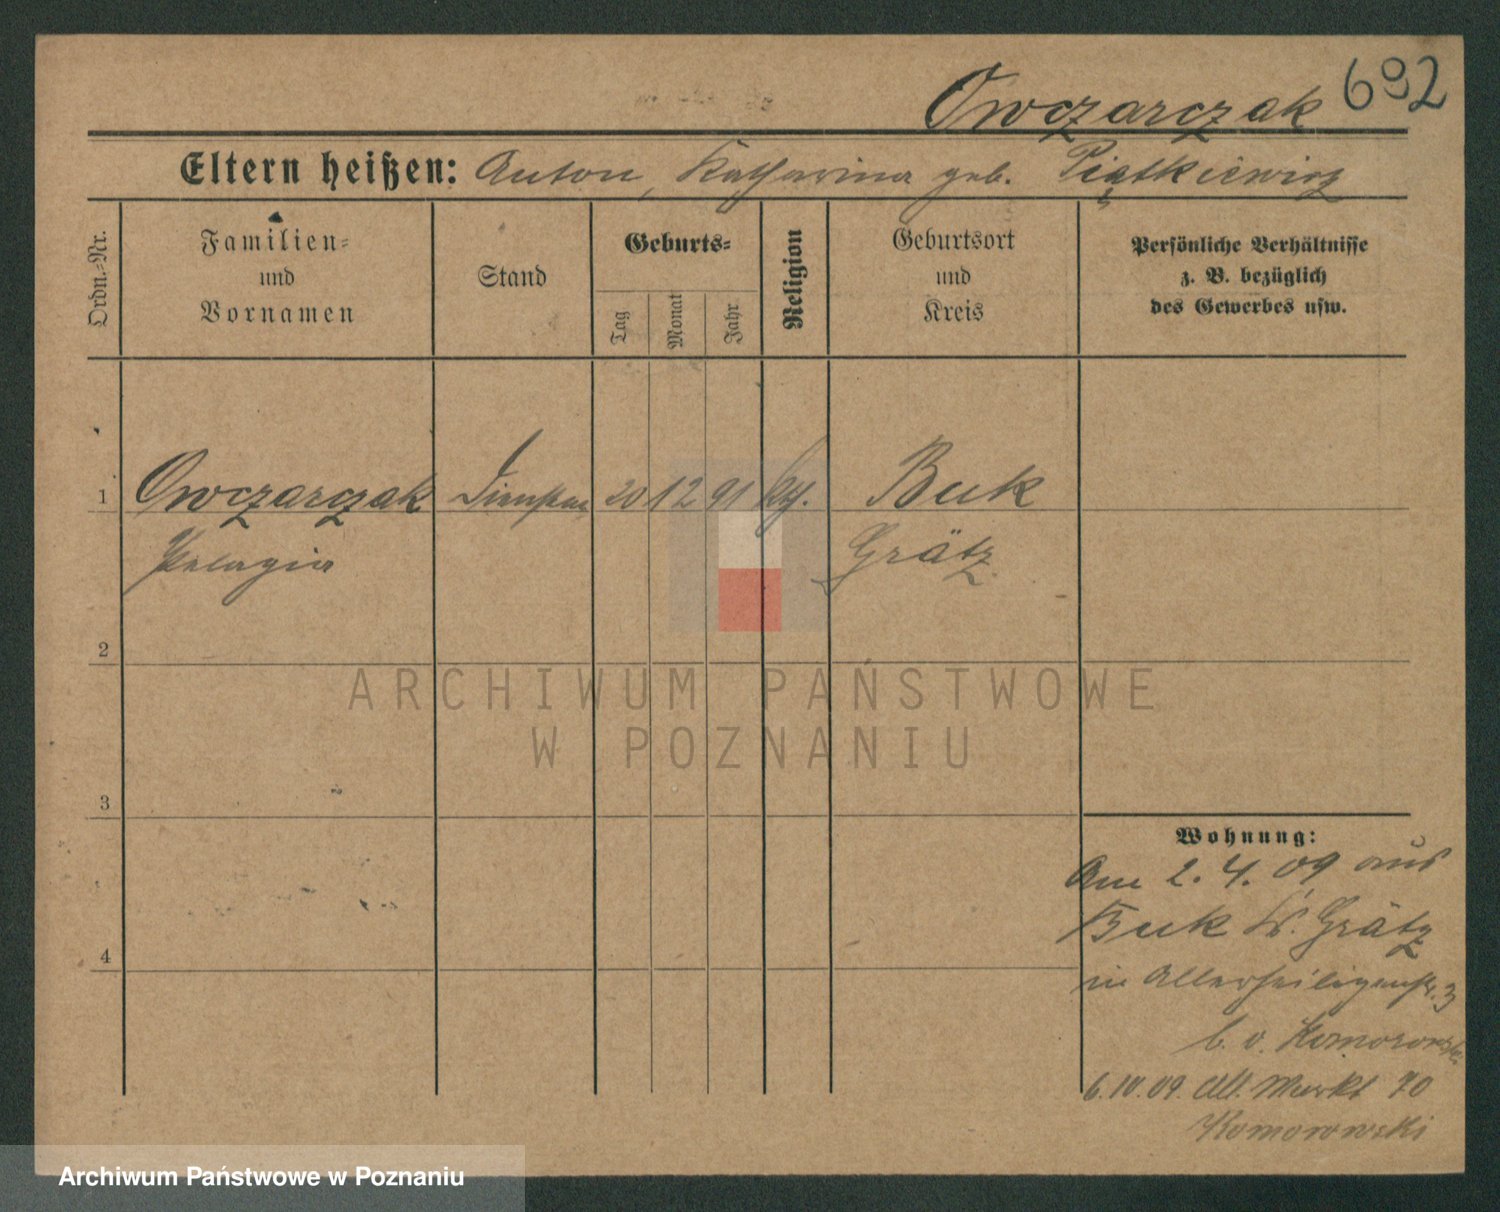 692
Owczarczak
Eltern heißen: Anton, Katharina geb. Piątkiewicz
Ordn.-Nr.
Familien-
und
Vornamen
Stand
Geburts-
Tag
Monat
Jahr
Religion
Geburtsort
und
Kreis
Persönliche Verhältnisse
z. B. bezüglich
des Gewerbes usw.
1 Owczarczak 20 12 91 kth. Buk
Pelagia Grätz
2
3
4
ARCHIWUM PAŃSTWOWE
W POZNANIU
Wohnung:
Am 2. 4. 09 aus
Buk Kr. Grätz
in Allerheiligenstr. 3
b. v. Komorowski
6.10.09. Alt. Markt 70
Komorowski
Archiwum Państwowe w Poznaniu